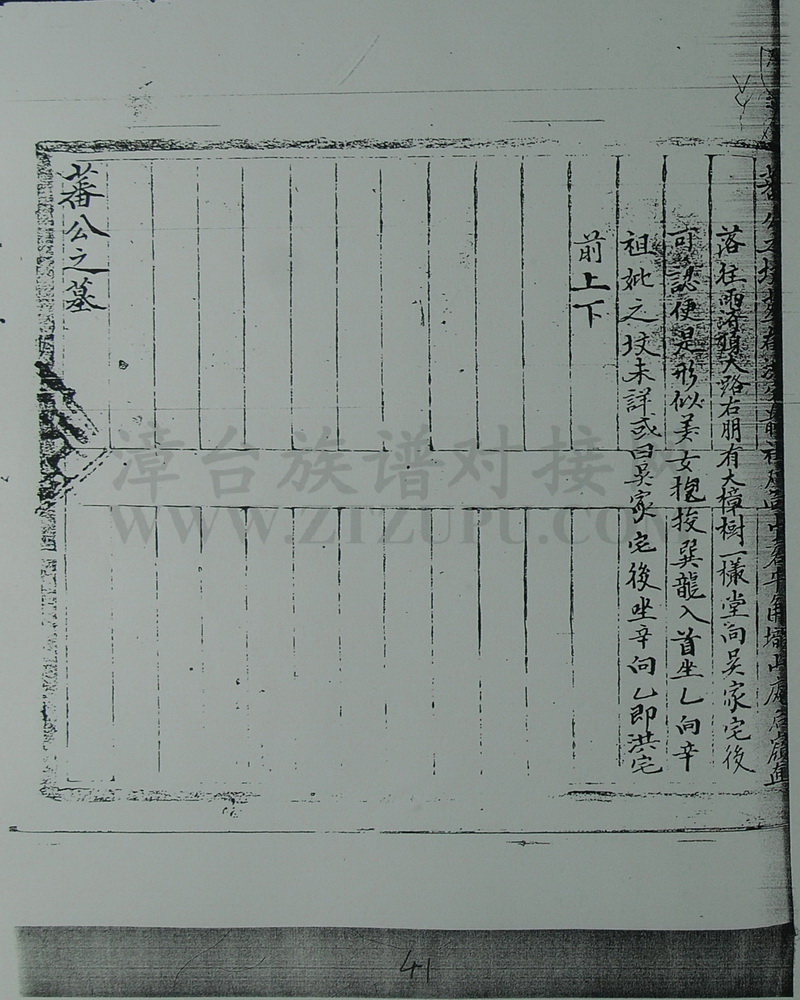 蕃公之墳
落在兩濟頭大路右朋有大樟樹一樣堂向吳家宅後
可認便是形似美女抱梭巽龍入首坐乙向辛
祖妣之坟未詳或曰吳家宅後坐辛向乙即洪宅
前上下
蕃公之墓
漳台族谱对接
WWW.ZTZUPU.COM
41